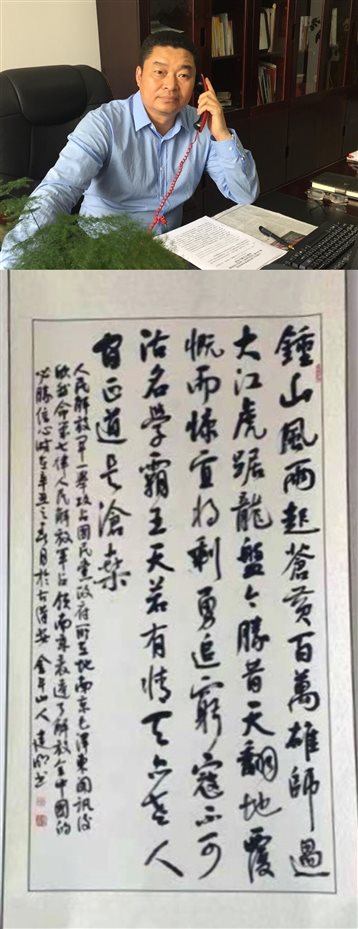 鍾山風雨起蒼黃百萬雄師過
大江虎踞龍盤今勝昔天翻地覆
慨而慷宜將剩勇追窮寇不可
沽名學霸王天若有情天亦老人
間正道是滄桑
人民解放軍一舉攻占國民黨政府所在地南京毛澤東聞訊後
欣然命筆七律人民解放軍占領南京表達了解放全中國的
必勝信心時在辛丑之月於古安金牛山人建明書